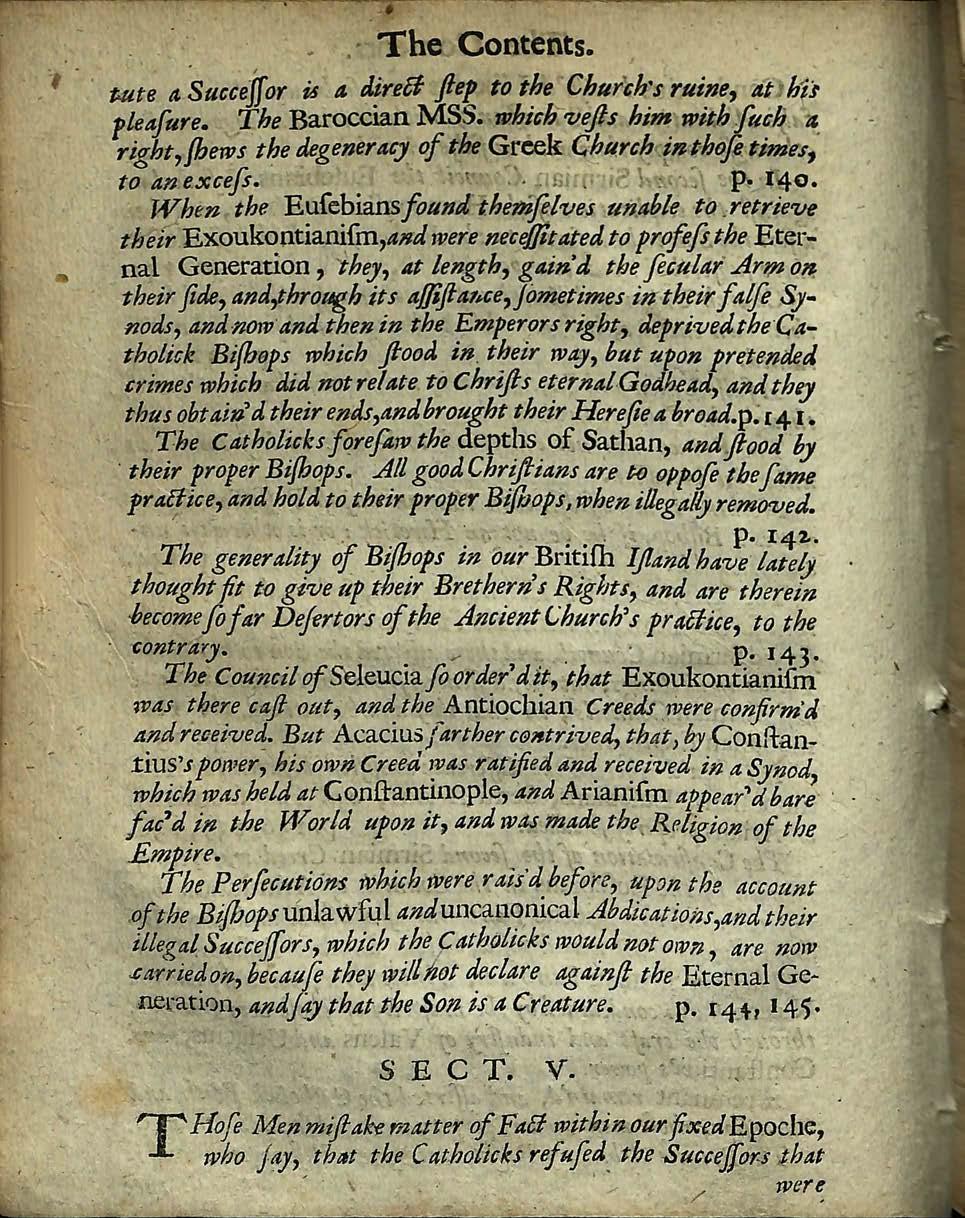 The Contents.
tute a Succeſſor is a direct ſtep to the Church's ruine, at his
pleaſure. The Baroccian MSS. which veſts him with ſuch a
right, ſhews the degeneracy of the Greek Church in thoſe times,
to an exceſs. p. 140.
When the Euſebians found themſelves unable to retrieve
their Exoukontianiſm, and were neceſſitated to profeſs the Eter-
nal Generation, they, at length, gain'd the ſecular Arm on
their ſide, and, through its aſſiſtance, ſometimes in their falſe Sy-
nods, and now and then in the Emperors right, deprived the Ca-
tholick Biſhops which ſtood in their way, but upon pretended
crimes which did not relate to Chriſts eternal Godhead, and they
thus obtain'd their ends, and brought their Hereſie abroad. p. 141.
The Catholicks foreſaw the depths of Sathan, and ſtood by
their proper Biſhops. All good Chriſtians are to oppoſe the ſame
practice, and hold to their proper Biſhops, when illegally removed.
p. 142.
The generality of Biſhops in our Britiſh Iſland have lately
thought fit to give up their Brethern's Rights, and are therein
become ſo far Deſertors of the Ancient Church's practice, to the
contrary. p. 143.
The Council of Seleucia ſo order'd it, that Exoukontianiſm
was there caſt out, and the Antiochian Creeds were confirm'd
and received. But Acacius farther contrived, that, by Conſtan-
tius's power, his own Creed was ratified and received in a Synod,
which was held at Conſtantinople, and Arianiſm appear'd bare
fac'd in the World upon it, and was made the Religion of the
Empire.
The Perſecutions which were rais'd before, upon the account
of the Biſhops unlawful and uncanonical Abdications, and their
illegal Succeſſors, which the Catholicks would not own, are now
carried on, becauſe they will not declare againſt the Eternal Ge-
neration, and ſay that the Son is a Creature. p. 144, 145.
SECT. V.
THoſe Men miſtake matter of Fact within our fixed Epoche,
who ſay, that the Catholicks refuſed the Succeſſors that
were